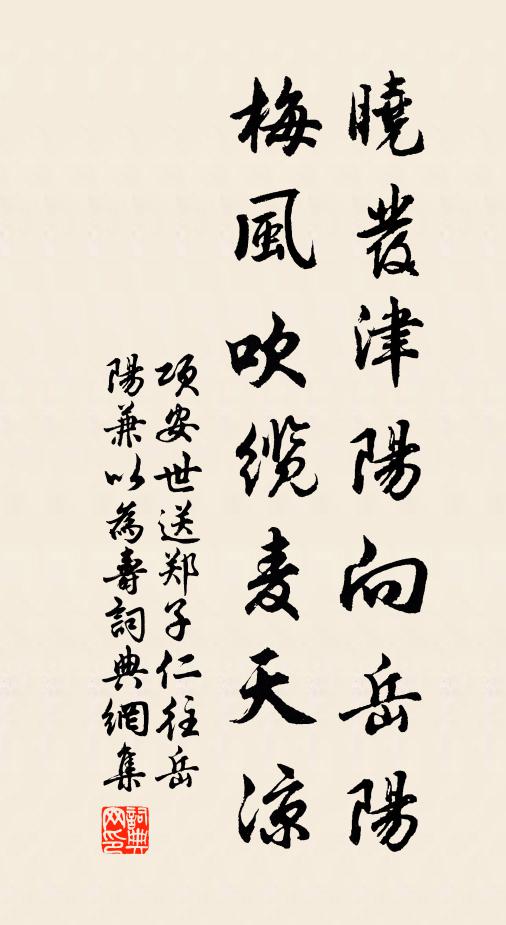 曉發津陽向岳陽
梅風吹纜麦天涼
项安世送郑子仁往岳
陽兼以為壽詞典網集
詞典
网印